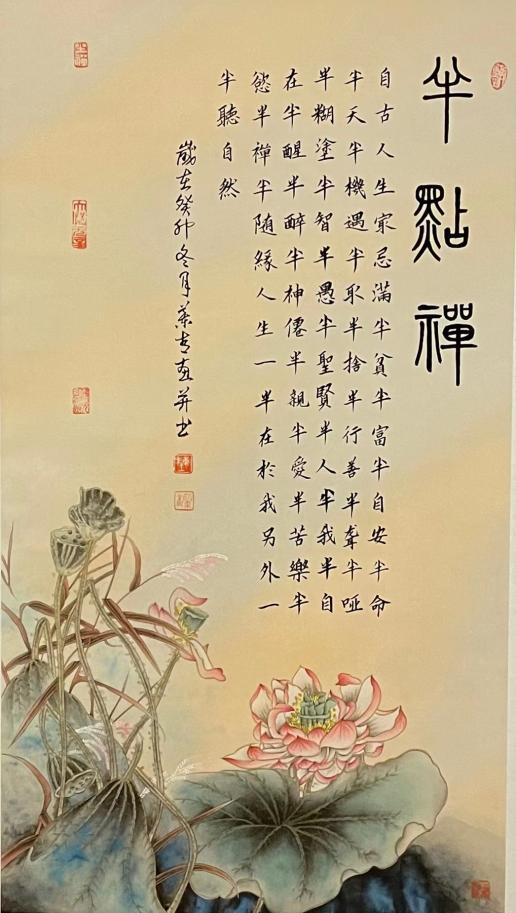 半點禪
自古人生㝡忌滿半貧半富半自安半命
半天半機遇半取半捨半行善半聾半啞
半糊塗半智半愚半聖賢半人半我半自
在半醒半醉半神僊半親半愛半苦樂半
慾半禪半隨緣人生一半在於我另外一
半聽自然
歲在癸卯冬月画并书